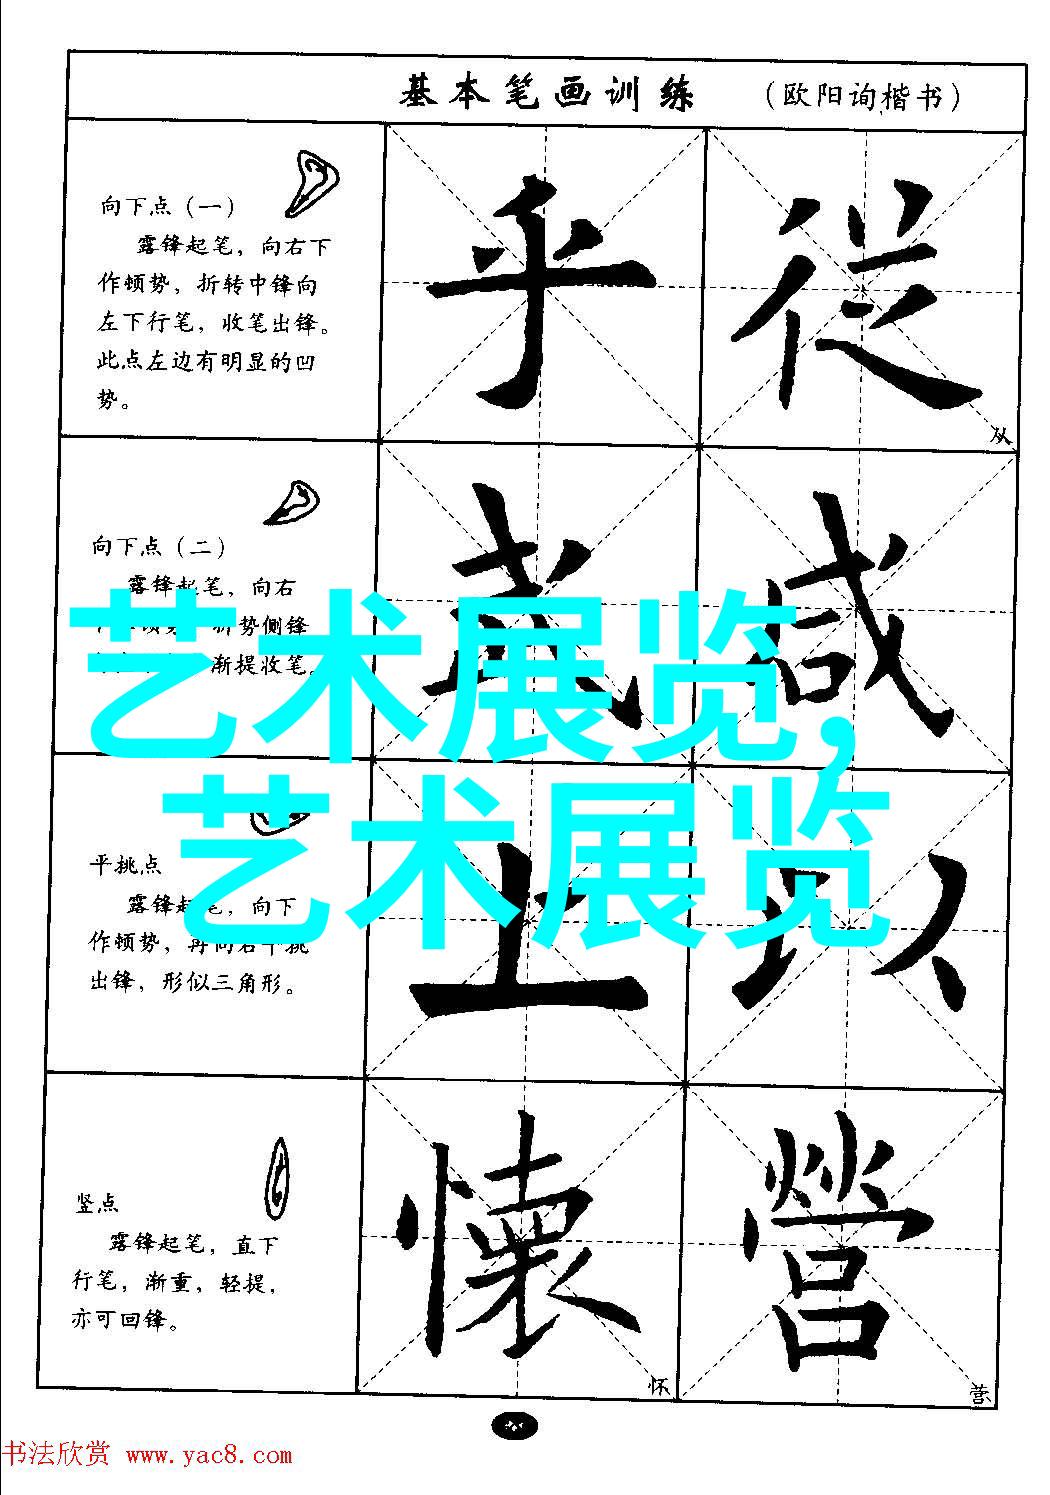 基本笔画训练 （欧阳询楷书）
向下点（一）
露锋起笔，向右下
作顿势，折转中锋向
左下行笔，收笔出锋。
此点左边有明显的凹
势。
乎 從
从
向下点（二）
露锋起笔，向右
顿势 折势侧锋
渐提收笔。
咸
艺术展览，
艺术展览
平挑点
露锋起笔，向下
作顿势，再向右平挑
出锋，形似三角形。
上 以
竖点
露锋起笔，直下
行笔，渐重，轻提，
亦可回锋。
懷 營
怀 营
书法欣赏 www.yac8.com